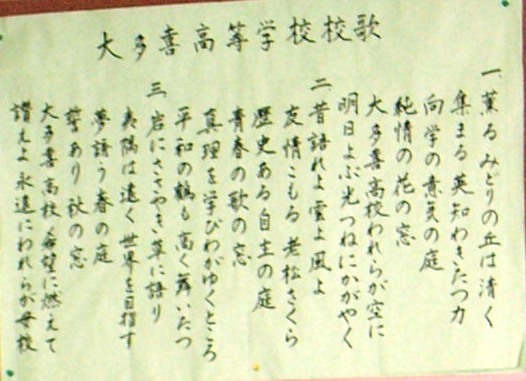 大多喜高等学校校歌
一、薫るみどりの丘は清く
集まる英知わきたつ力
向学の意気の庭
純情の花の窓
大多喜高校われらが空に
明日よぶ光つねにかがやく
二、昔語れよ雲よ風よ
友情こもる老松さくら
歴史ある自主の庭
青春の歌の窓
真理を学びわがゆくところ
平和の鶴も高く舞いたつ
三、岩にささやき草に語り
夷隅は遠く世界を目指す
夢誘う春の庭
誓あり秋の窓
大多喜高校希望に燃えて
讃えよ永遠にわれらが母校